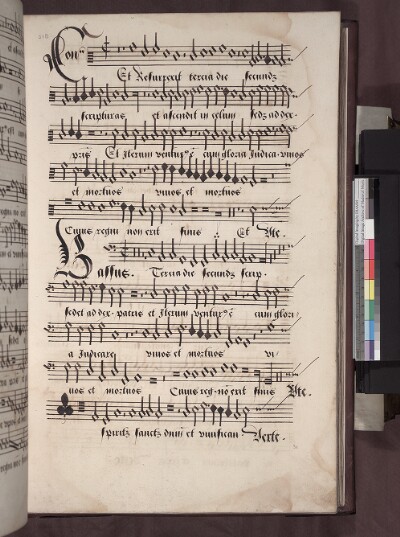 Et Resurrexit tercia die secundz
scripturas et ascendit in celum sedz ad dex-
pris Et Iterum venturz ē cum gloria Iudica-vivos
et mortuos vivos et mortuos
Cuius regni non erit finis Et
Bassus. Tercia die secundz scrip-
sedet ad dex-patris et Iterum venturz ē cum glori
a Iudicare vivos et mortuos vi-
vos et mortuos Cuius reg-nō erit finis
spiritz sanctz dnm et vivifican Verte.